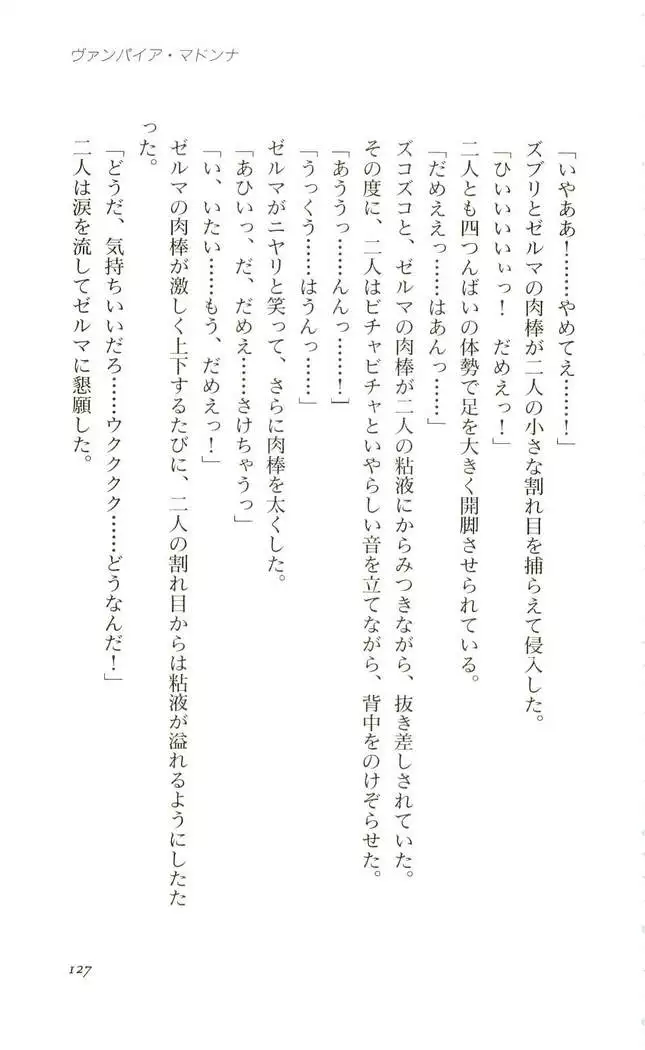 ヴァンパイア・マドンナ
「いやああ！……やめてえ……！」
ズブリとゼルマの肉棒が二人の小さな割れ目を捕らえて侵入した。
「ひいいいいぃっ！　だめえっ！」
二人とも四つんばいの体勢で足を大きく開脚させられている。
「だめええっ……はあんっ……」
ズコズコと、ゼルマの肉棒が二人の粘液にからみつきながら、抜き差しされていた。
その度に、二人はビチャビチャといやらしい音を立てながら、背中をのけぞらせた。
「あううっ……んんっ……！］
「うっくう……はうんっ……」
ゼルマがニヤリと笑って、さらに肉棒を太くした。
「あひいっ、だ、だめえ……さけちゃうっ」
「い、いたい……もう、だめえっ！」
ゼルマの肉棒が激しく上下するたびに、二人の割れ目からは粘液が溢れるようにしたた
った。
「どうだ、気持ちいいだろ……ウクククク……どうなんだ！」
二人は涙を流してゼルマに懇願した。
127